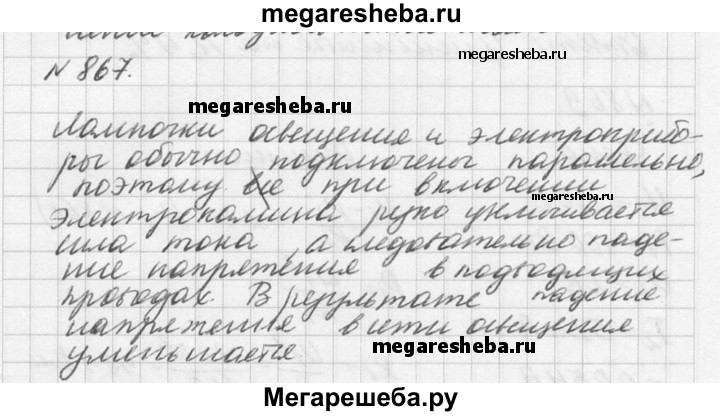 megaresheba.ru
megaresheba.ru
N 867.
megaresheba.ru
Лампочки освещения и электроприбо-
ры обычно подключены параллельно,
поэтому при включении
megaresheba.ru
электрокамина резко увеличивается
сила тока, а следовательно паде-
ние напряжения в подводящих
проводах. В результате падение
напряжения в сети освещения
уменьшается
megaresheba.ru
Мегарешеба.ру